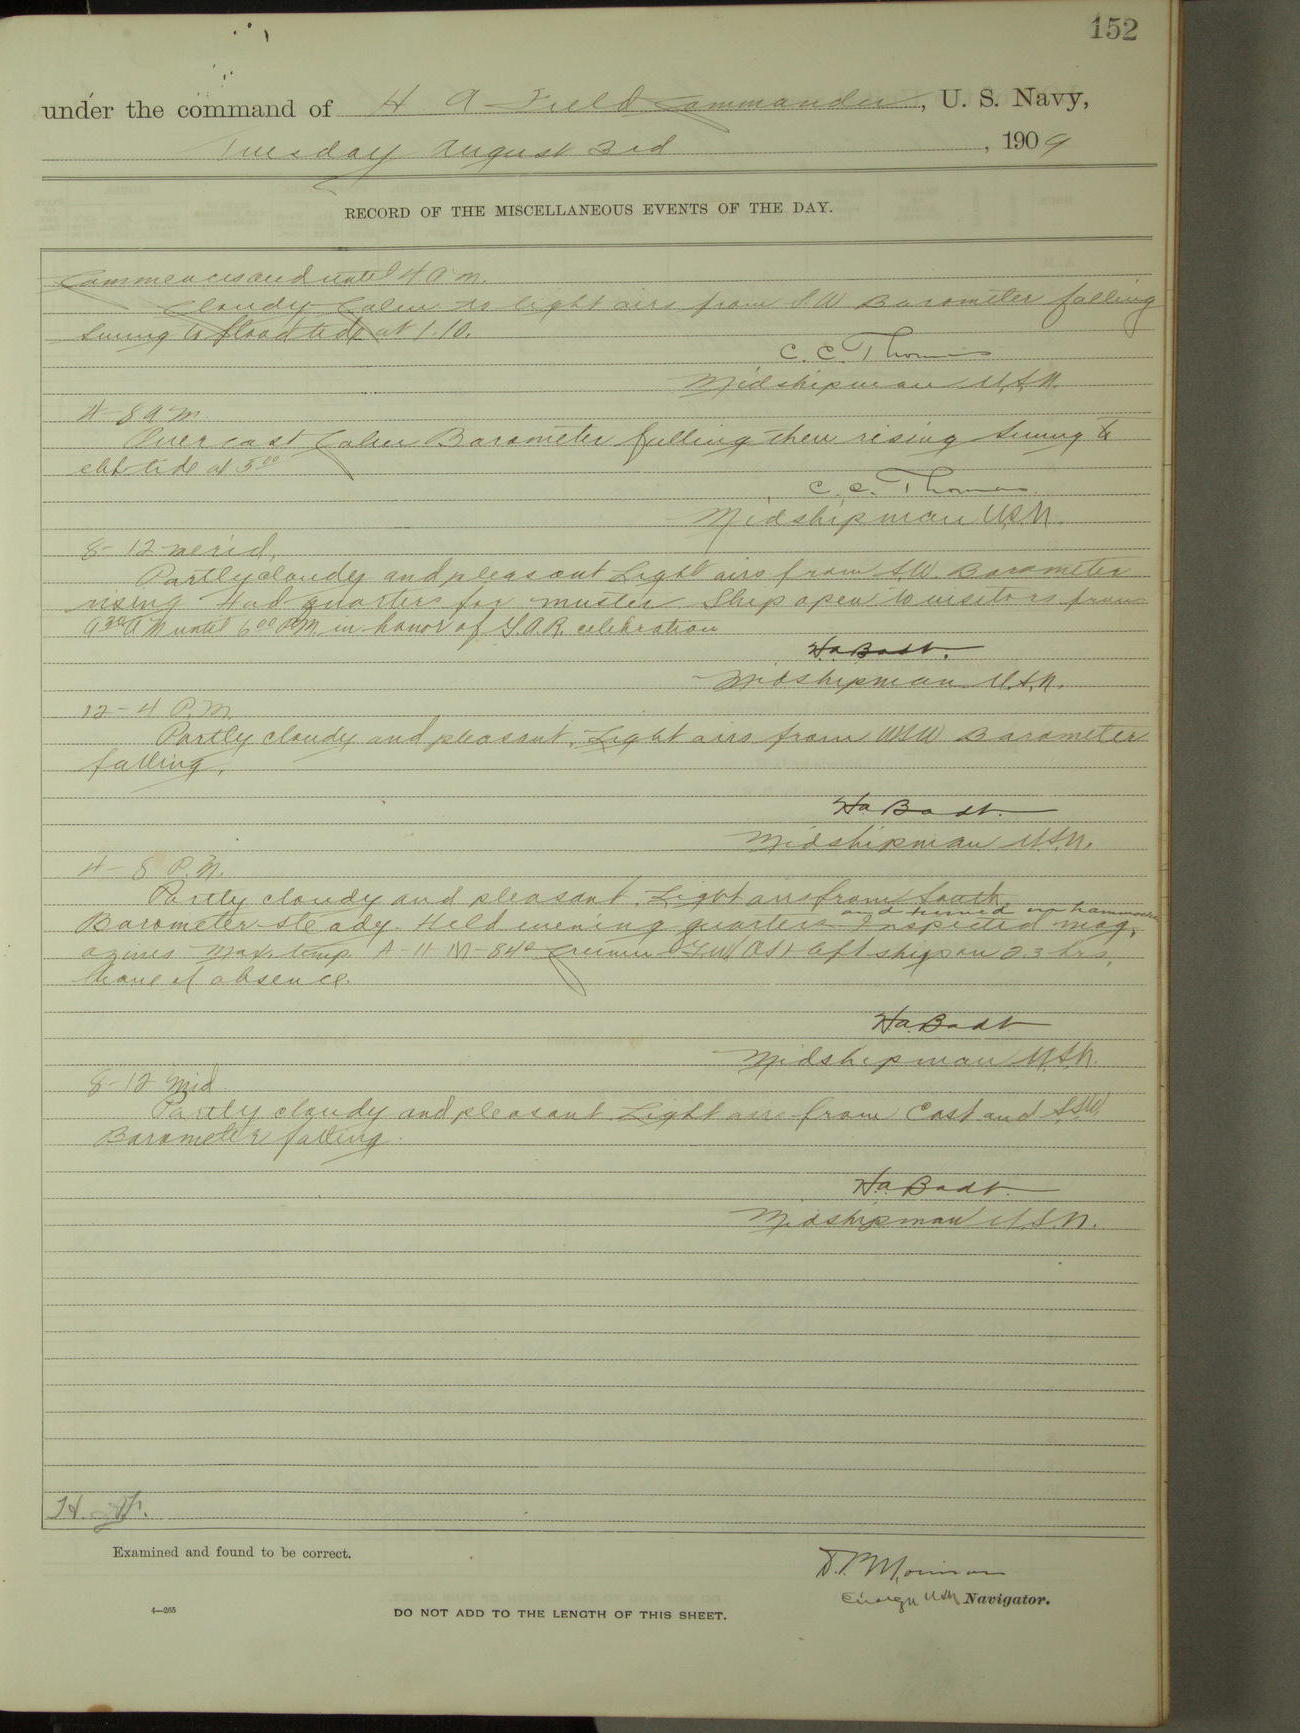 152
under the command of H A Field Commander, U. S. Navy,
Tuesday August 3rd, 1909
RECORD OF THE MISCELLANEOUS EVENTS OF THE DAY.
Commences and until 4 a m.
Cloudy Calm to light airs from S.W. Barometer falling
Swung to flood tide at 1.10.
C. C. Thomas
Midshipman U.S.N.
4-8 a m.
Overcast Calm Barometer falling then rising Swung to
ebb tide at 5 00
C. C. Thomas
Midshipman U.S.N.
8-12 merid.
Partly cloudy and pleasant Light airs from S.W. Barometer
rising Had quarters for muster Ship open to visitors from
9 30 A M until 6 00 P M in honor of G.A.R. celebration
H.a. Badt.
Midshipman U.S.N.
12-4 P.M.
Partly cloudy and pleasant, Light airs from WSW Barometer
falling.
H.a Badt.
Midshipman U.S.N.
4-8 P.M.
Partly cloudy and pleasant. Light airs from South,
Barometer steady. Held evening quarters and turned up hammocks Inspected mag,
azines Max. temp. A-11-M-84° left ship on 23 hrs,
leave of absence.
H.a. Badt
Midshipman U.S.N.
8-12 Mid
Partly cloudy and pleasant Light airs from East and SSW,
Barometer falling.
H.a. Badt.
Midshipman U.S.N.
Examined and found to be correct.
Ensign USN Navigator.
4-265
DO NOT ADD TO THE LENGTH OF THIS SHEET.